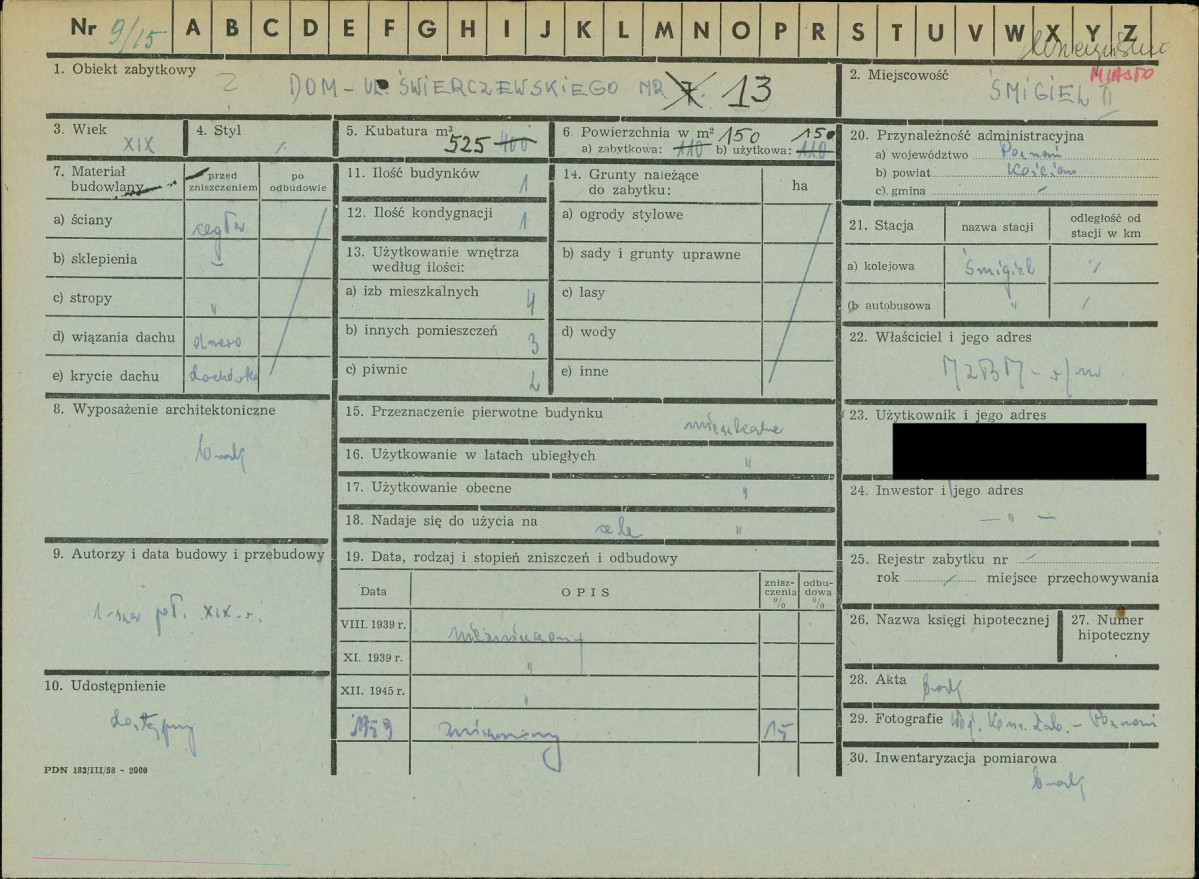 Nr 9/15 A B C D E F G H I J K L M N O P R S T U V W X Y Z
1. Obiekt zabytkowy
DOM - UL. ŚWIERCZEWSKIEGO NR 7. 13
2. Miejscowość
MIASTO
ŚMIGIEL
3. Wiek
XIX
4. Styl
5. Kubatura m³
525 400
6 Powierzchnia w m² 150 150
a) zabytkowa: 110 b) użytkowa: 110
7. Materiał budowlany
przed zniszczeniem
po odbudowie
a) ściany cegła
b) sklepienia –
c) stropy "
d) wiązania dachu drewo
e) krycie dachu dachówka
8. Wyposażenie architektoniczne
brak
9. Autorzy i data budowy i przebudowy
1-sza poł. XIX w.
10. Udostępnienie
dostępny
PDN 183/III/58 - 2000
11. Ilość budynków 1
12. Ilość kondygnacji 1
13. Użytkowanie wnętrza według ilości:
a) izb mieszkalnych 4
b) innych pomieszczeń 3
c) piwnic
14. Grunty należące do zabytku:
ha
a) ogrody stylowe
b) sady i grunty uprawne
c) lasy
d) wody
e) inne
15. Przeznaczenie pierwotne budynku mieszkalne
16. Użytkowanie w latach ubiegłych "
17. Użytkowanie obecne "
18. Nadaje się do użycia na cele "
19. Data, rodzaj i stopień zniszczeń i odbudowy
Data
OPIS
zniszczenia %
odbudowa %
VIII. 1939 r. niezniszczony
XI. 1939 r. "
XII. 1945 r. "
1959 zniszczony 15
20. Przynależność administracyjna
a) województwo Poznań
b) powiat Kościan
c) gmina -
21. Stacja
nazwa stacji
odległość od stacji w km
a) kolejowa Śmigiel
(b autobusowa "
22. Właściciel i jego adres
MZBM - w/m
23. Użytkownik i jego adres
24. Inwestor i jego adres
— " —
25. Rejestr zabytku nr
rok miejsce przechowywania
26. Nazwa księgi hipotecznej
27. Numer hipoteczny
28. Akta brak
29. Fotografie Woj. Kons. Zab. - Poznań
30. Inwentaryzacja pomiarowa
brak